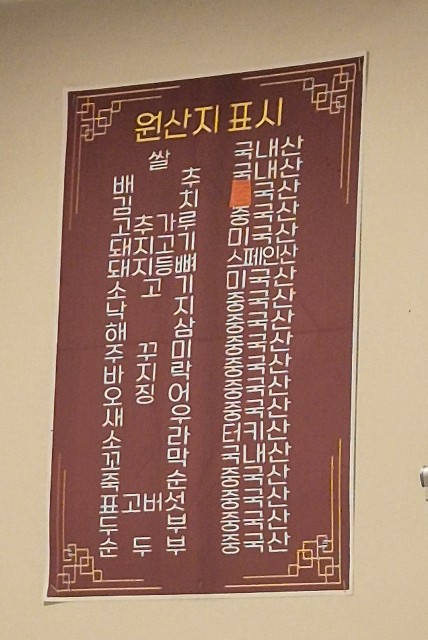 원산지 표시
쌀 국내산
배추 국내산
김치 국산
고추가루 중국산
돼지고기 미국산
돼지등뼈 스페인산
소고기 미국산
낙지 중국산
해삼 중국산
주꾸미 중국산
바지락 중국산
오징어 중국산
새우 중국산
소라 터키산
꼬막 국내산
죽순 중국산
표고버섯 중국산
두부 중국산
순두부 중국산